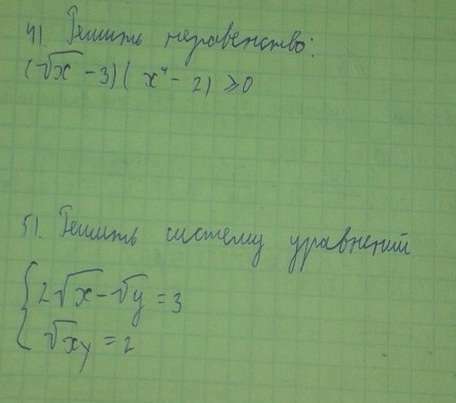 4). Решить неравенство:
(√x - 3)(x⁴ - 2) ≥ 0
5). Решить систему уравнений
{ 2√x - √y = 3
√xy = 2